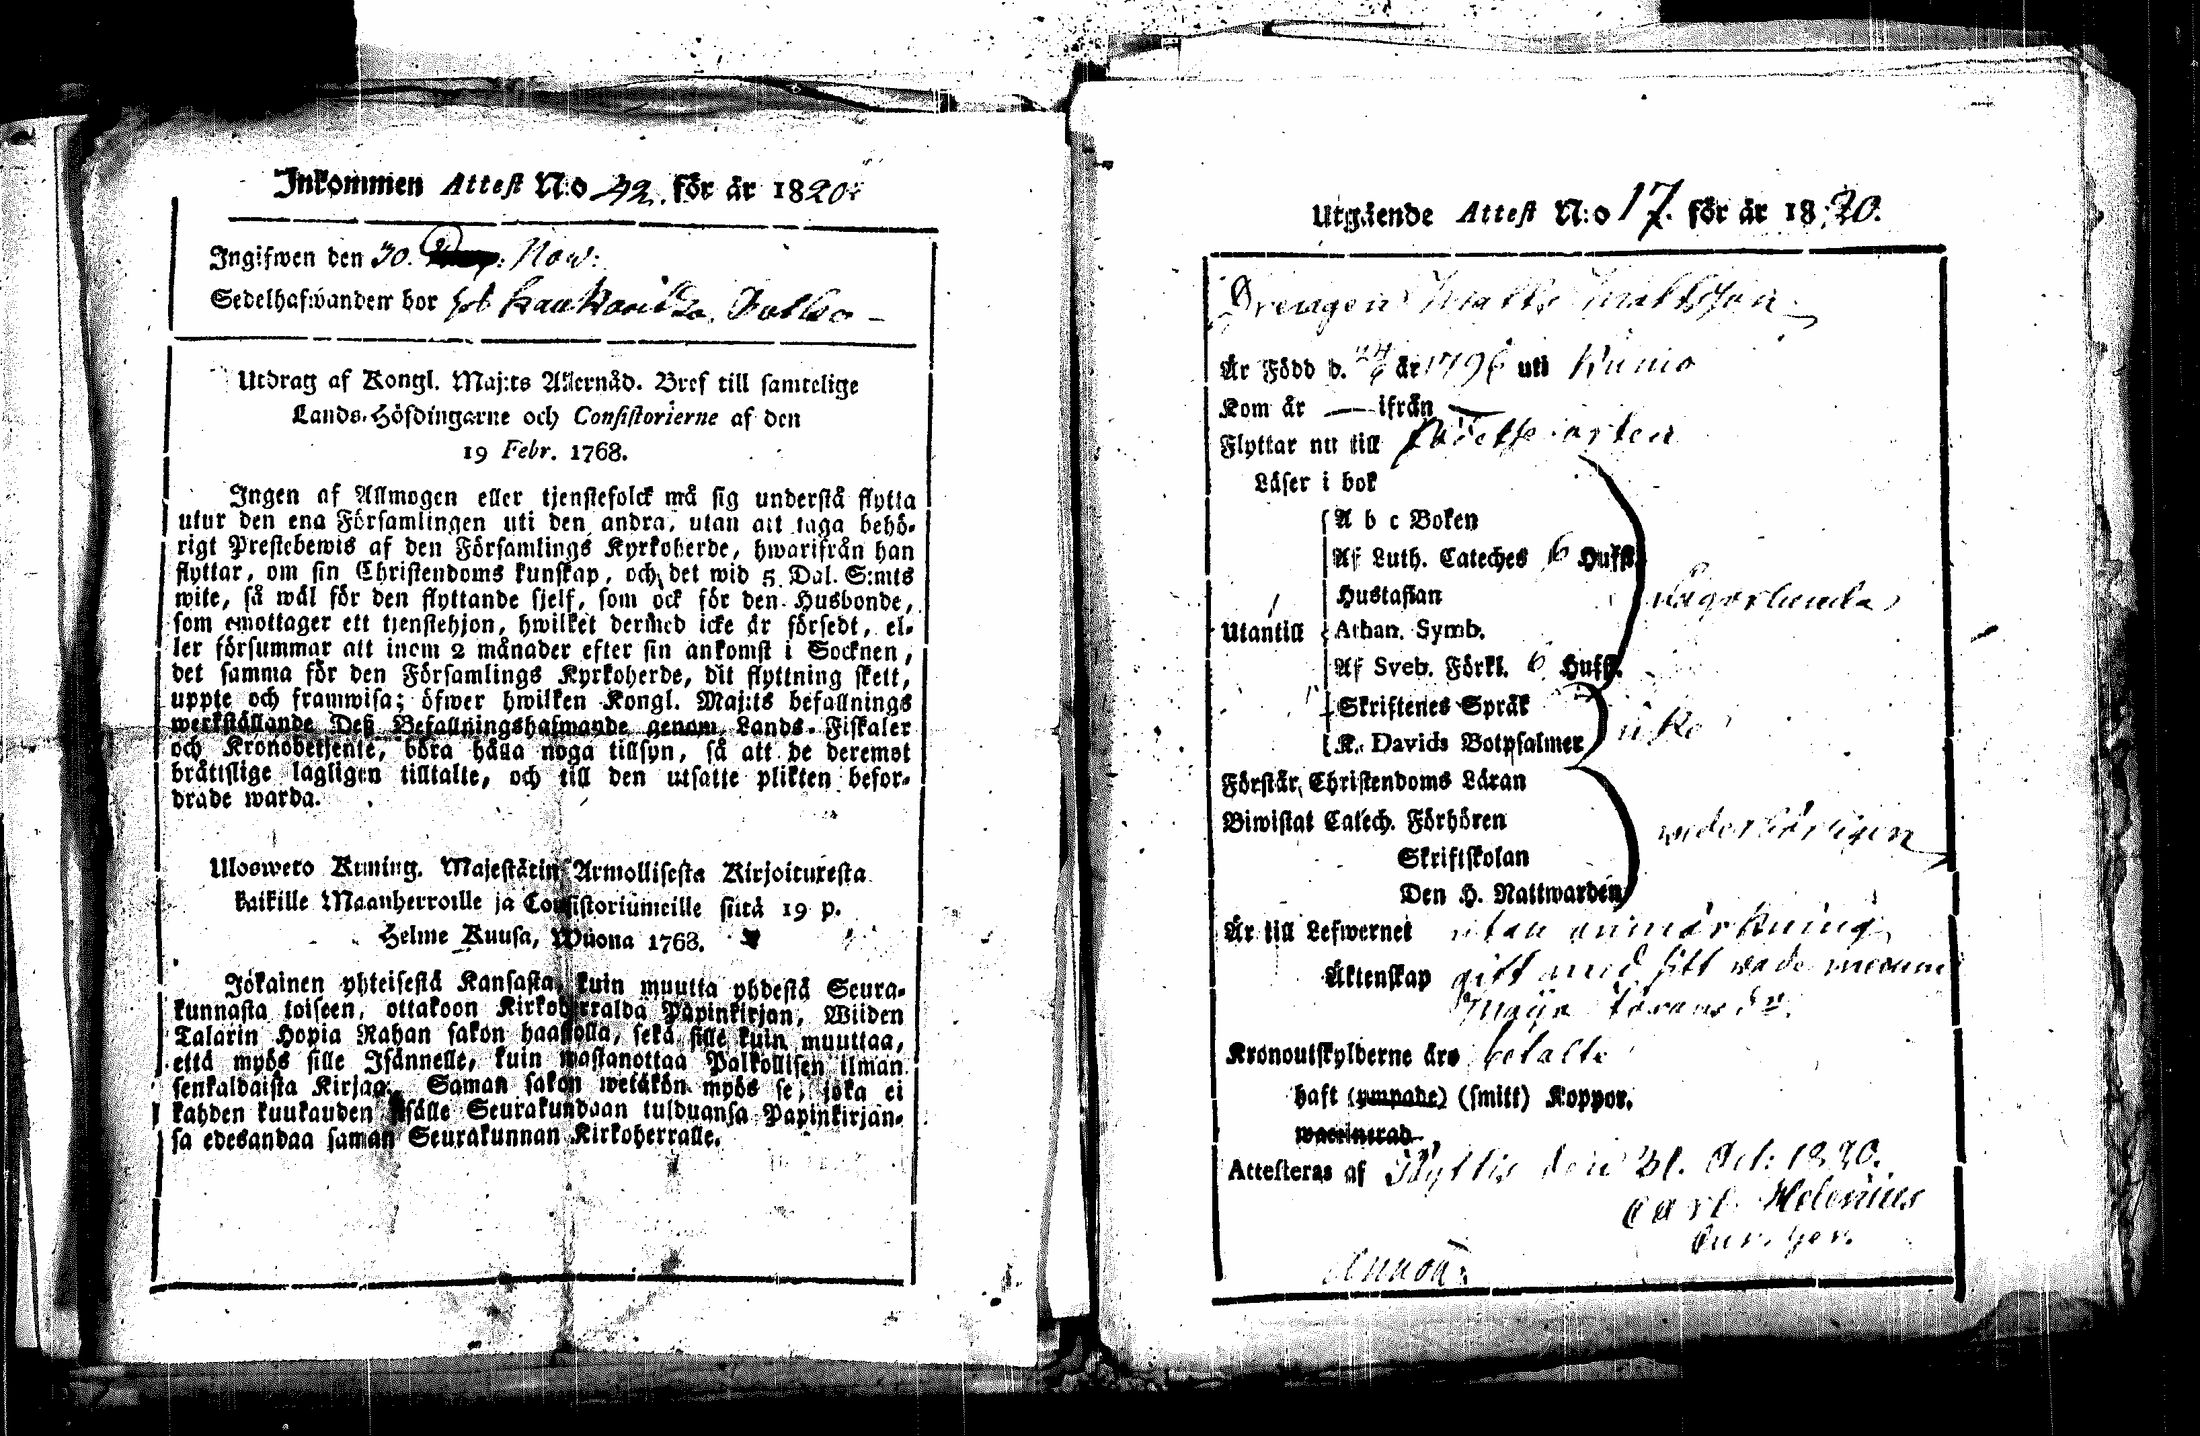 Inkommen Attest N:o 42. för år 1820.
Ingifwen den 30. Now:
Sedelhafwanden bor
Utdrag af Kongl. Maj:ts Allernåd. Bref till samtelige
Lands-Höfdingarne och Consistorierne af den
19 Febr. 1768.
Ingen af Allmogen eller tjenstefolck må sig understå flytta
utur den ena Församlingen uti den andra, utan att taga behö-
rigt Prestebewis af den Församlings Kyrkoherde, hwarifrån han
flyttar, om sin Christendoms kunskap, och det wid 5. Dal. S:mts
wite, så wäl för den flyttande sjelf, som ock för den Husbonde,
som emottager ett tjenstehjon, hwilket dermed icke är försedt, el-
ler försummar att inom 2 månader efter sin ankomst i Socknen,
det samma för den Församlings Kyrkoherde, dit flyttning skett,
uppte och framwisa; öfwer hwilken Kongl. Maj:ts befallnings
werkställande Deß Befallningshafwande genom Lands-Fiskaler
och Kronobetjente, böra hålla noga tillsyn, så att de deremot
bråttslige lagligen tilltalte, och till den utsatte plikten befor-
drade warda.
Ulosweto Kuning. Majestätin Armollisesta Kirjoituxesta
kaikille Maanherroille ja Consistoriumeille siitä 19 p.
Helme Kuusa, Wuona 1768.
Jokainen yhteisestä Kansasta, kuin muutta yhdestä Seura-
kunnasta toiseen, ottakoon Kirkoherralda Papinkirjan, Wiiden
Talarin Hopia Rahan sakon haastolla, sekä sille kuin muuttaa,
että myös sille Isännelle, kuin wastanottaa Palkollisen ilman
senkaldaista Kirjaa. Saman sakon wetäkön myös se, joka ei
kahden kuukauden sisälle Seurakundaan tulduansa Papinkirjan-
sa edesandaa saman Seurakunnan Kirkoherralle.
Utgående Attest N:o 17. för år 1820.
Drengen Matts Mattsson
Är Född d. 24/6 år 1796 uti Kumo
Kom år — ifrån —
Flyttar nu till
Läser i bok
A b c Boken
Af Luth. Cateches 6 Hufst.
Hustaflan
Utantill Athan. Symb.
Af Sveb. Förkl. 6 Hufst.
någorlunda
Skriftenes Språk
K. Davids Botpsalmer
icke
Förstår Christendoms Läran
Biwistat Catech. Förhören
Skriftskolan
Den H. Nattwarden
wederbörligen
Är till Lefwernet utan anmärkning
Äktenskap gift med sitt
Maija
Kronoutskylderne äro betalte
haft (ympade) (smitt) Koppor.
waccinerad
Attesteras af Kjyttis den 31. Oct: 1820.
Carl Helenius